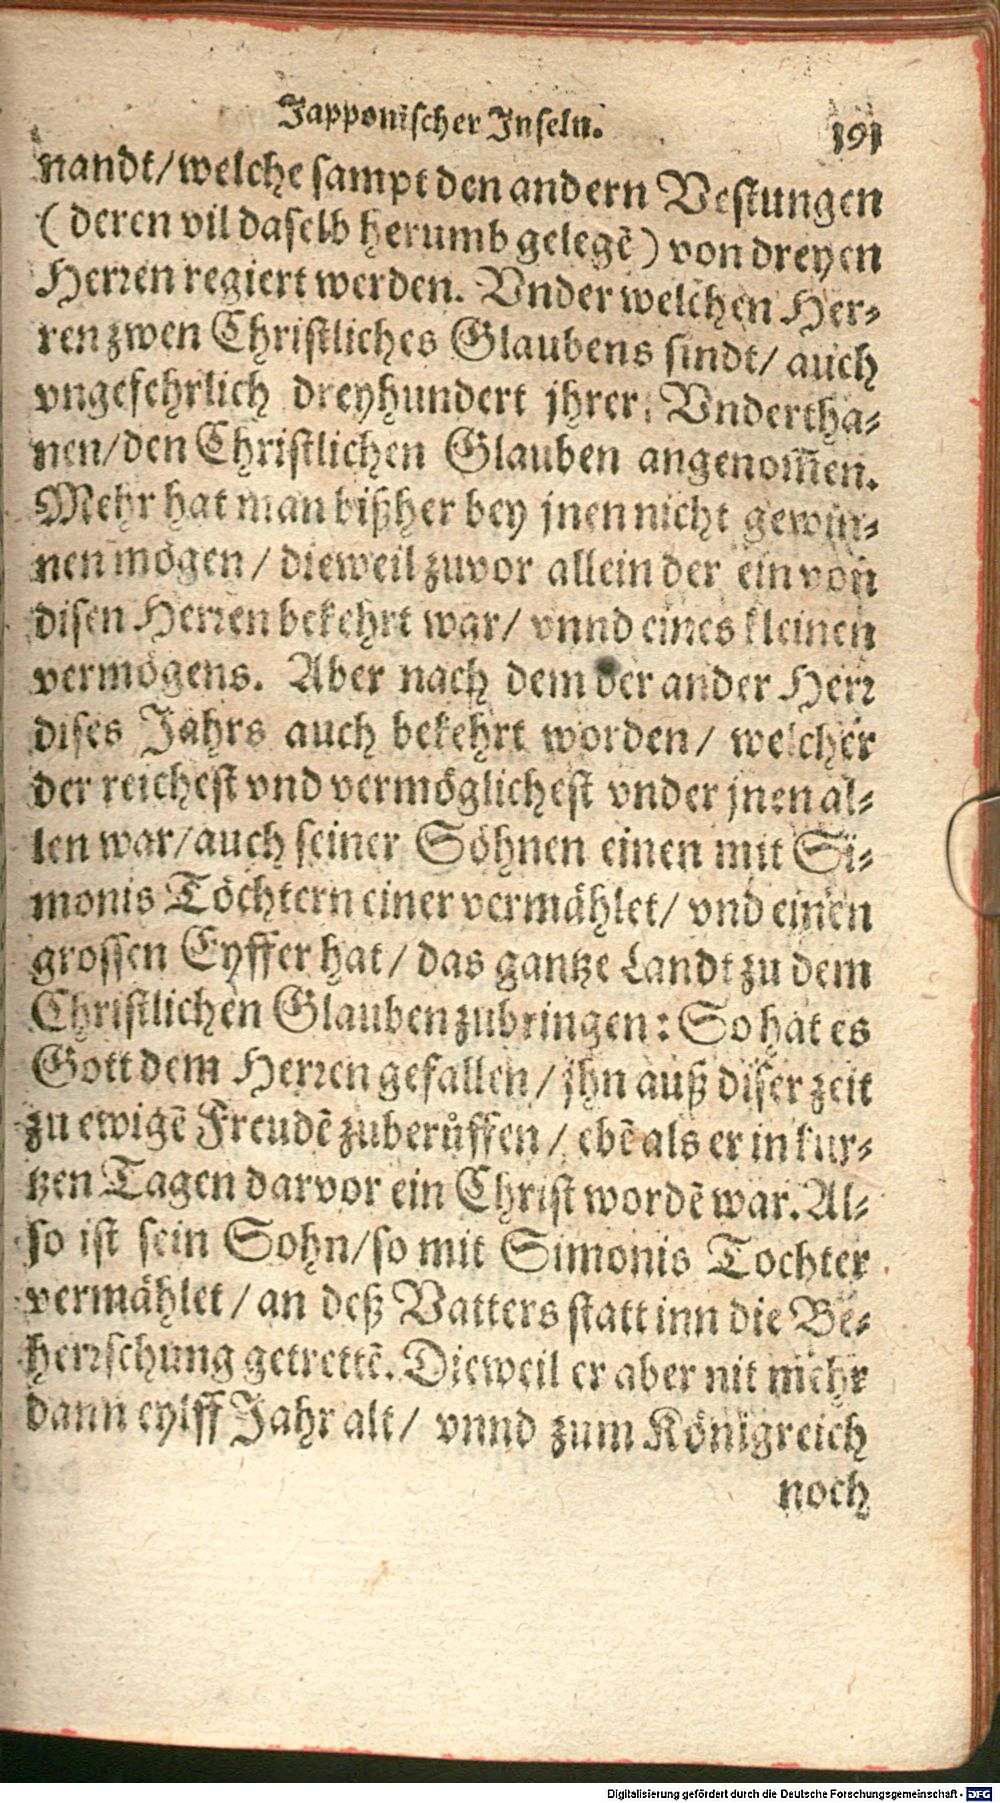 Japponischer Inseln. 191
nandt/welche sampt den andern Vestungen
(deren vil daselb herumb gelegẽ) von dreyen
Herren regiert werden. Vnder welchen Her⸗
ren zwen Christliches Glaubens sindt/ auch
vngefehrlich dreyhundert jhrer Vndertha⸗
nen/den Christlichen Glauben angenom̃en.
Mehr hat man bißher bey jnen nicht gewin⸗
nen mögen/ dieweil zuvor allein der ein von
disen Herren bekehrt war/ vnnd eines kleinen
vermögens. Aber nach dem der ander Herr
dises Jahrs auch bekehrt worden/ welcher
der reichest vnd vermöglichest vnder jnen al⸗
len war/auch seiner Söhnen einen mit Si⸗
monis Töchtern einer vermählet/ vnd einen
grossen Eyffer hat/ das gantze Landt zu dem
Christlichen Glauben zubringen: So hat es
Gott dem Herren gefallen/ jhn auß diser zeit
zu ewigẽ Freudẽ zuberůffen/ ebẽ als er in kur⸗
tzen Tagen darvor ein Christ wordẽ war. Al⸗
so ist sein Sohn/so mit Simonis Tochter
vermählet/ an deß Vatters statt inn die Be⸗
herrschung getrettẽ. Dieweil er aber nit mehr
dann eylff Jahr alt/ vnnd zum Königreich
noch
Digitalisierung gefördert durch die Deutsche Forschungsgemeinschaft - DFG